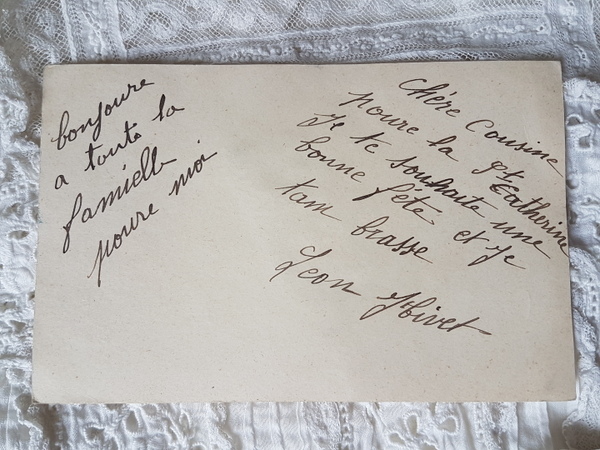 bonjoure
a toute la
famielle
poure moi
Chère Cousine
poure la St Catherine
Je te souhaite une
bonne fête et Je
tam brasse
Leon Hivet